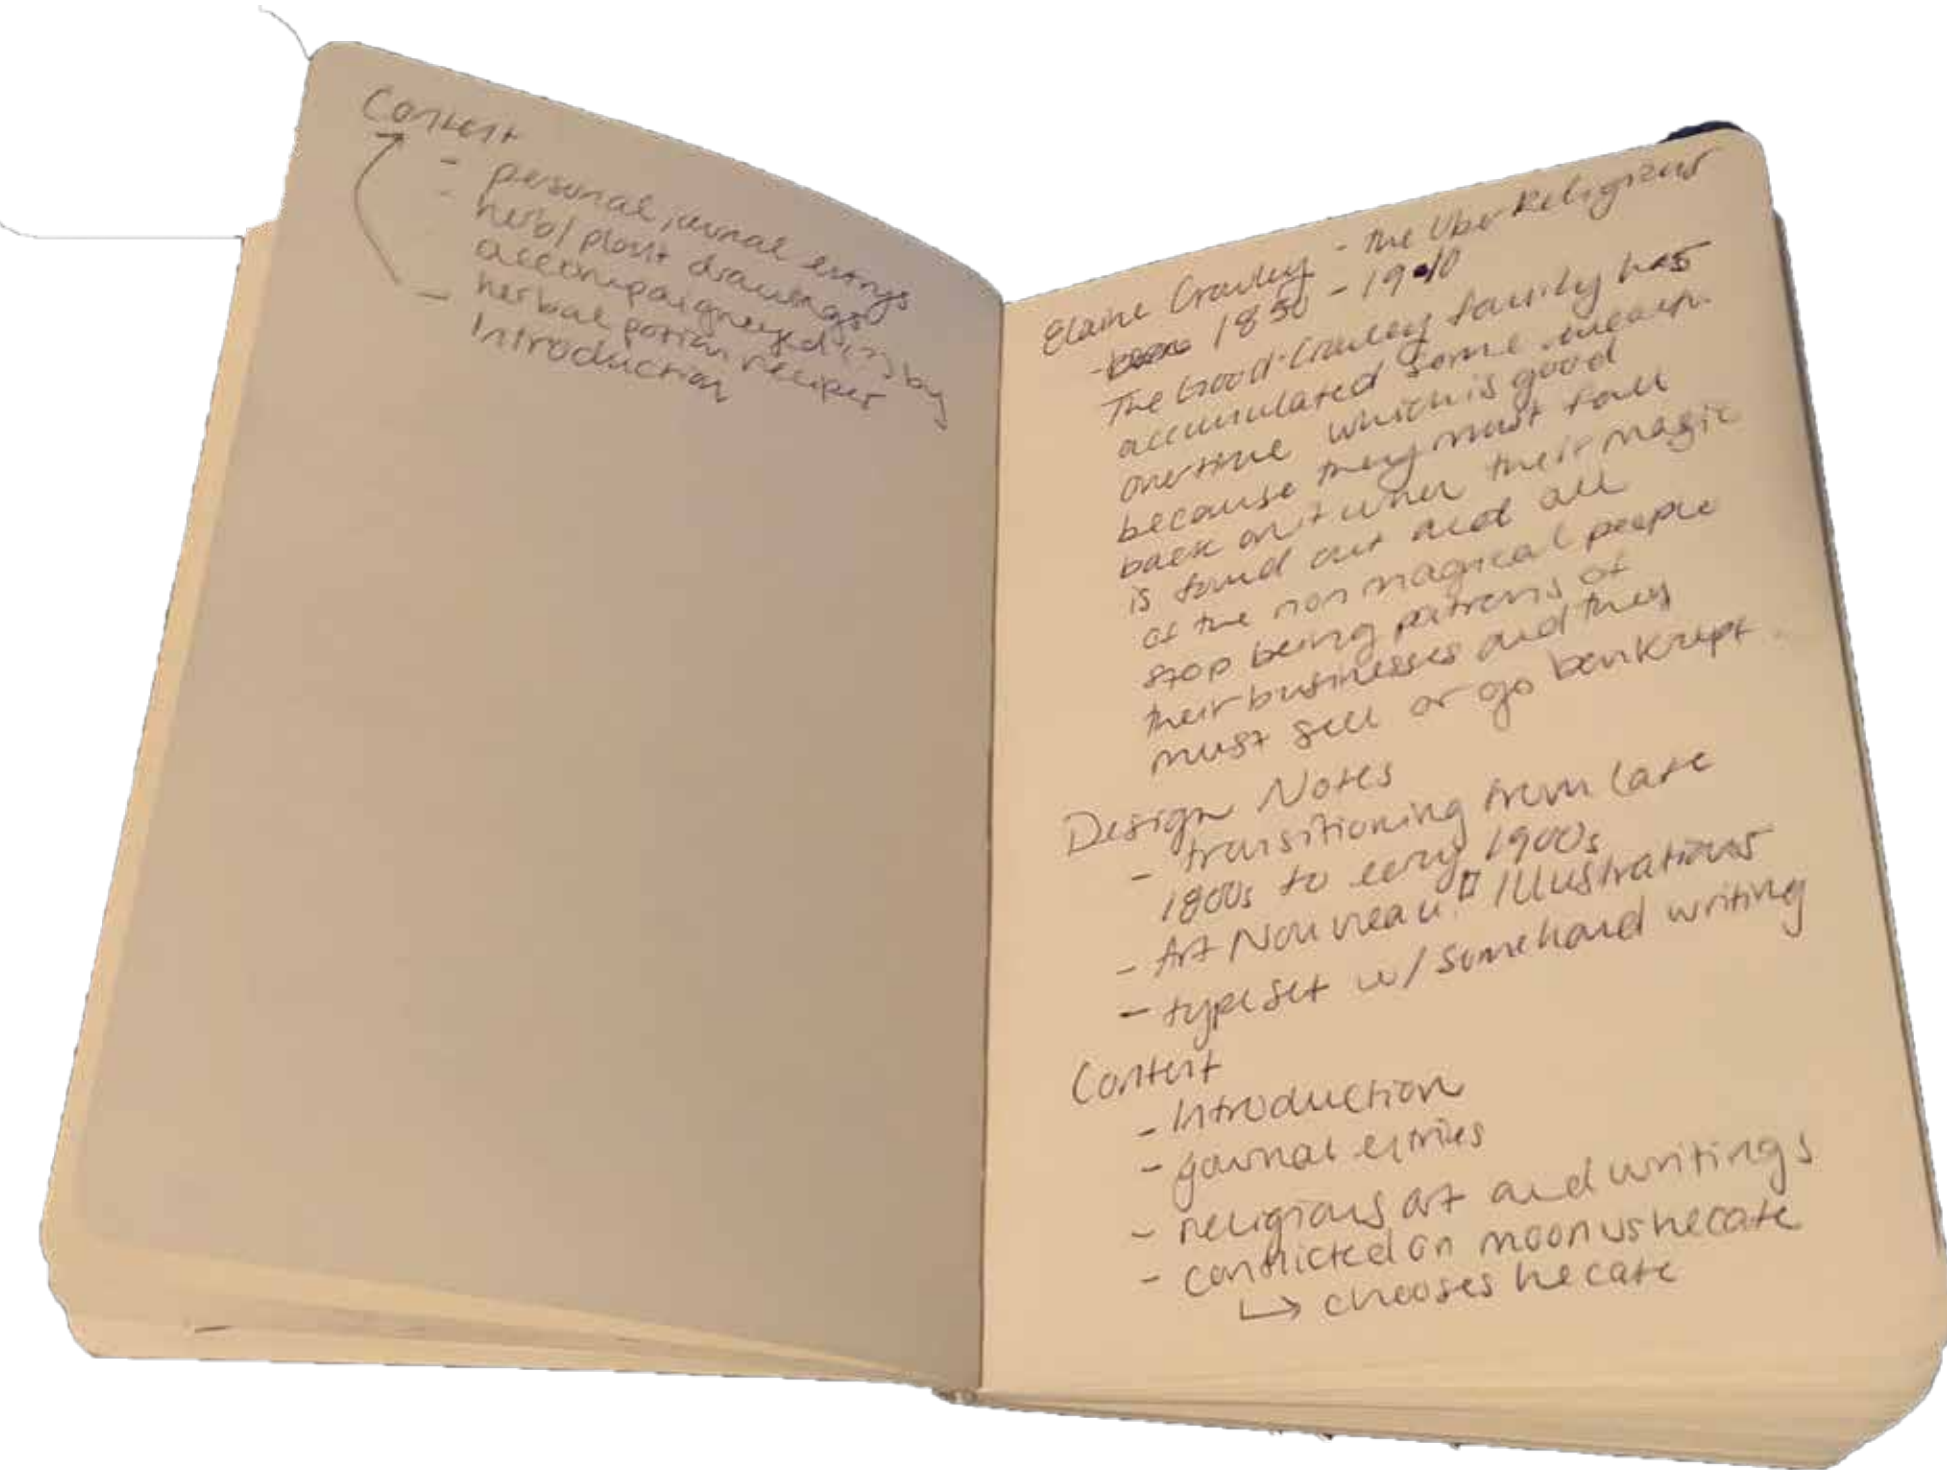 Content
- personal journal entrys
- herb/plant drawings
accompaigneyed by
herbal potion recipes
- Introduction
Elaine Crawley - the Uber Religious
- 1850 - 1910
The Good-Crawley family has
accumulated some wealth
overtime which is good
because they must fall
back on it when their magic
is found out and all
of the non magical people
stop being patrons of
their businesses and they
must sell or go bankrupt.
Design Notes
- transitioning from late
1800s to early 1900s
- Art Nouveau Illustrations
- typeset w/ some hand writing
Content
- Introduction
- journal entries
- religious art and writings
- conflicted on moon vs hecate
↳ chooses hecate